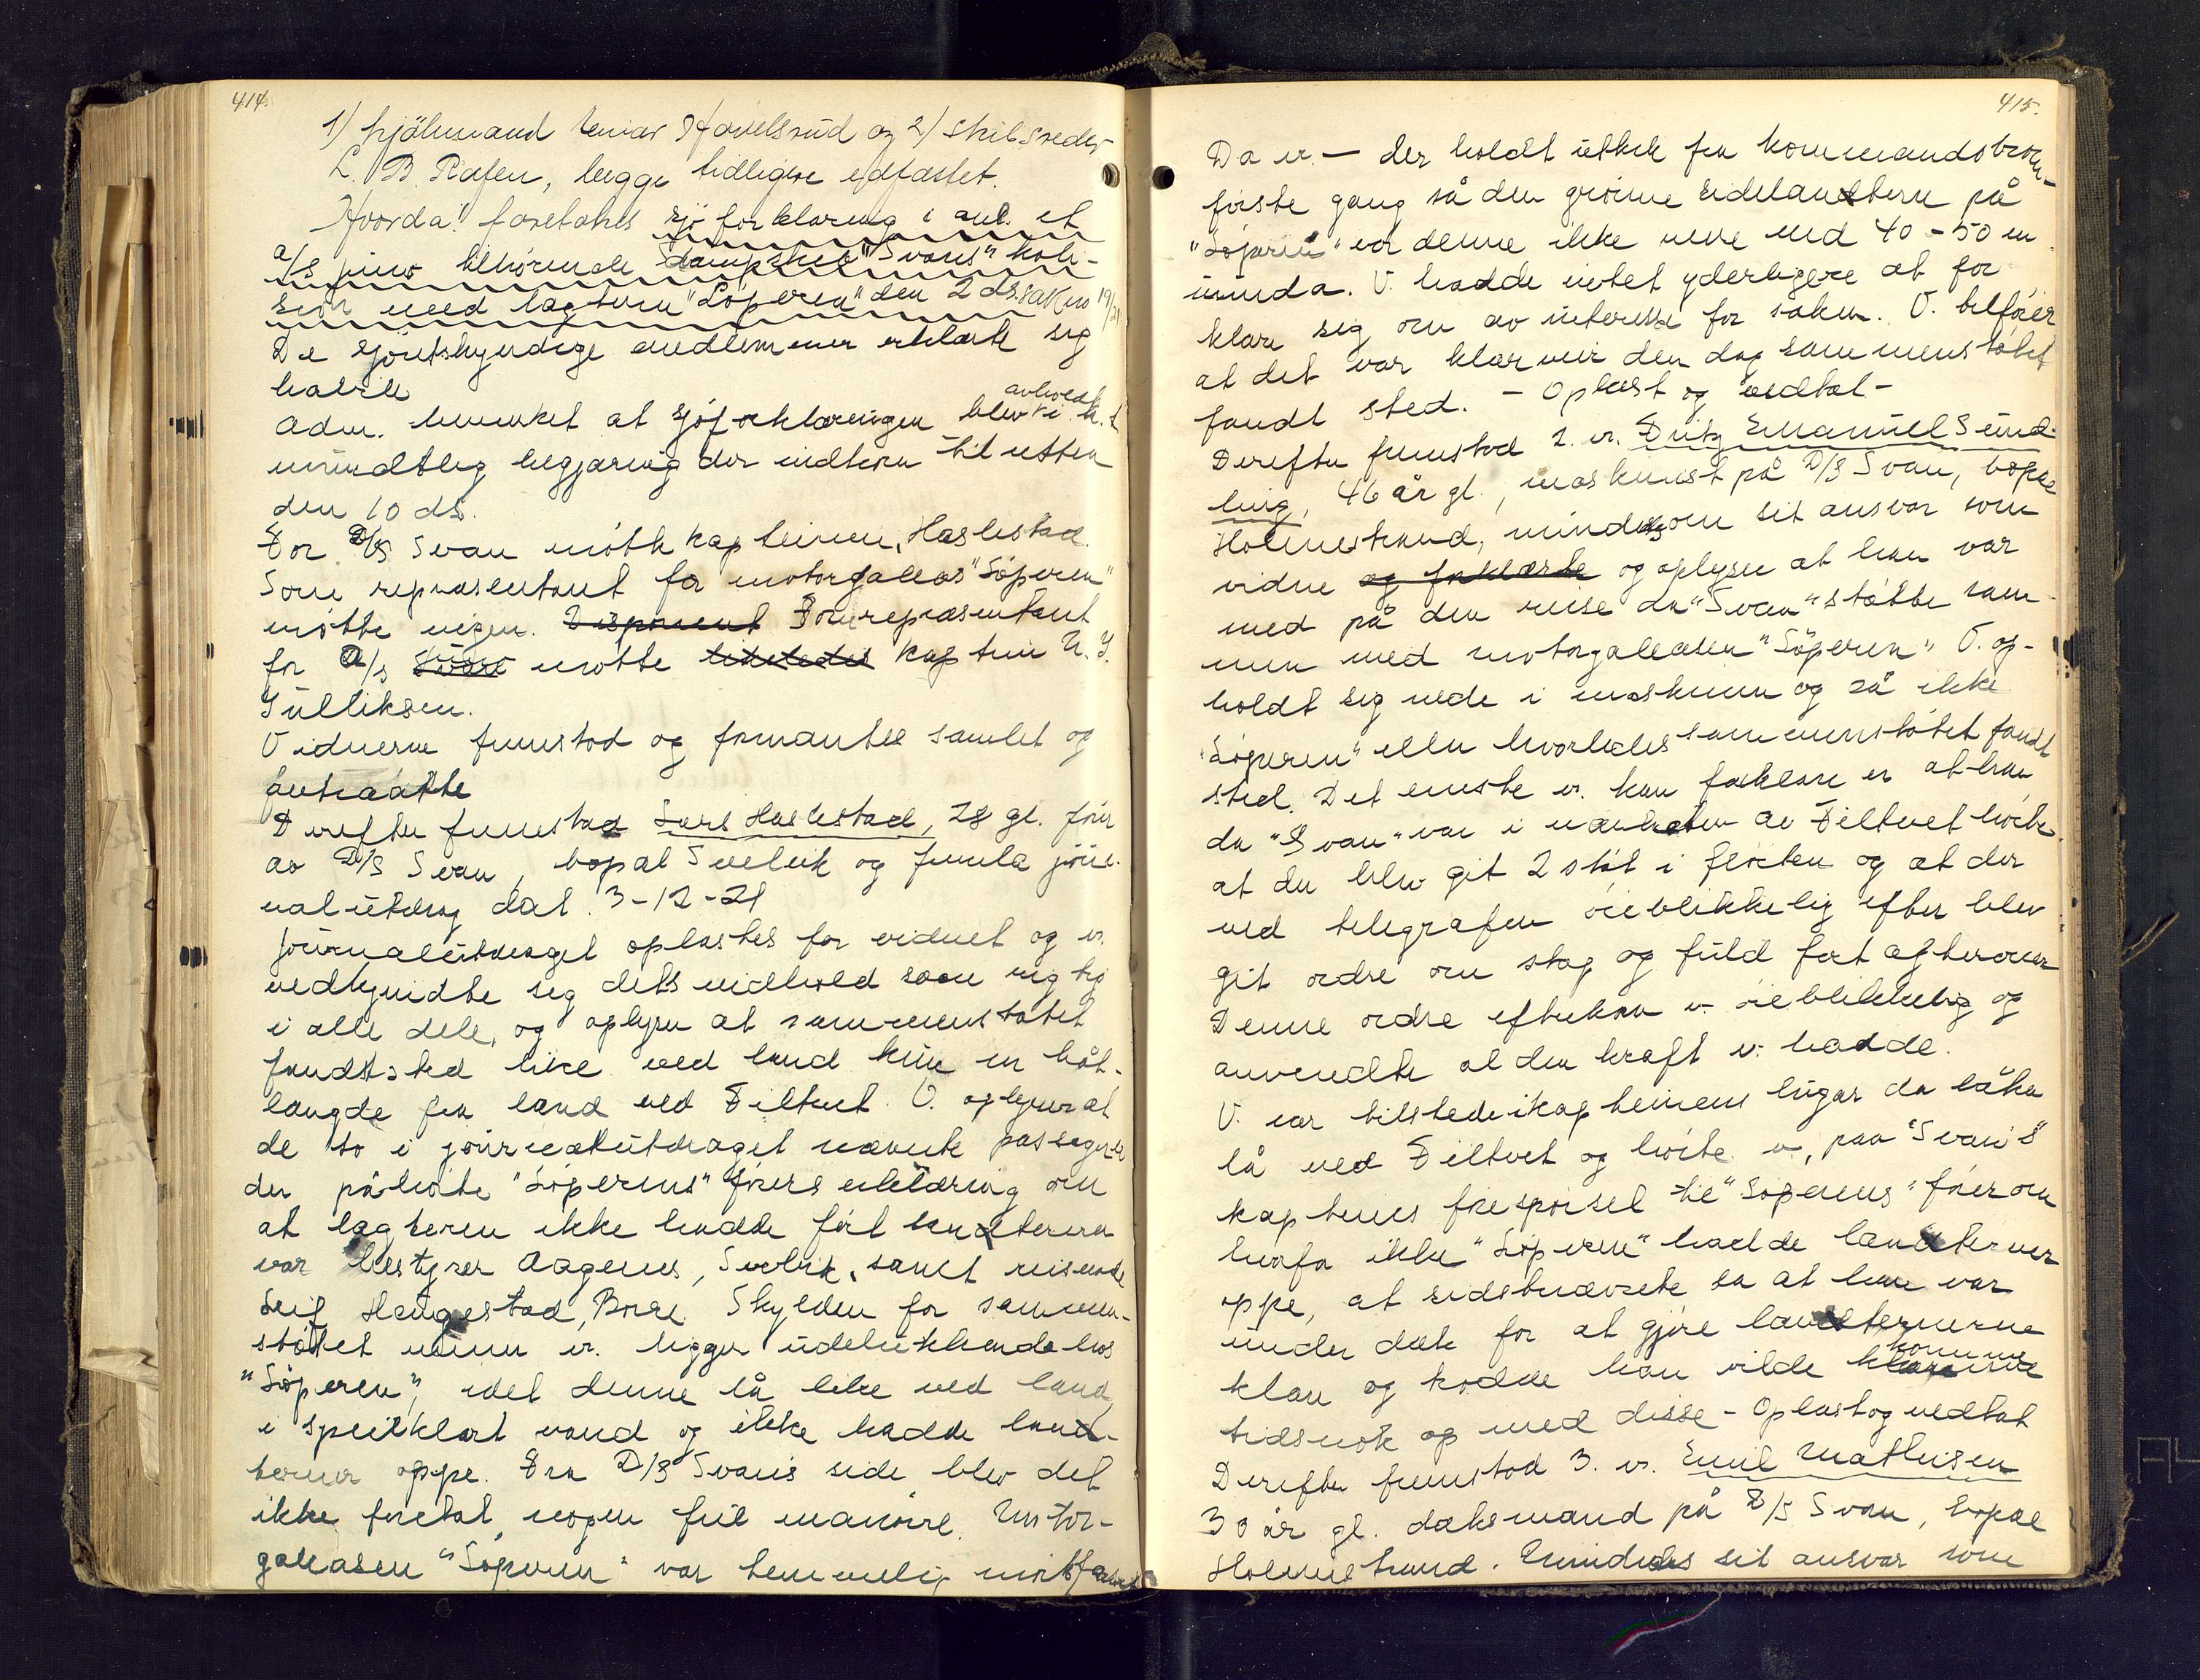 414.
1) hjölmand Einar Havelsrud og 2) skibsreder
L. B. Riafen, begge tidligere edfæstet.
Hvorda! foretokes sjöforklaring i anl. et
a/s Juno tilhörende dampskib "Svan's" koli-
sion med lagturn "Löperen" den 2 ds. sak no 19/21
De sjöretskyndige medlemmer erklærte sig
habile
Adm. bemerket at sjöforklaringen blev avholdt i h. t
mundtlig begjæring der indkom til retten
den 10 ds.
For D/S Svan mötte kapteinen, Haslestad.
Som repræsentant for motorgaleas "Löperen"
mötte ingen. Disponent Som repræsentant
for A/s Juno mötte likeledes kaptein N. J.
Gulliksen.
Vidnerne fremstod og formantes samlet og
fratraatte
Derefter fremstod Lars Haslestad, 28 gl. förer
av D/S Svan, bopæl Svelvik og fremla jour-
nalutdrag dat. 3-12-21
Journalutdraget oplæstes for vidnet og v.
vedkjendte seg dets indhold som rigtig
i alle dele, og oplyser at sammenstötet
fandt sted like ved land kun en båt-
længde fra land ved Filtvet. V. oplyser at
de to i journalutdraget nævnte passagerer
der påhörte "Löperens" förers erklæring om
at lagteren ikke hadde fört lanterner
var bestyrer Aagenes, Svelvik, samt reisende
Leif Haugestad, Borre. Skylden for sammen-
stötet mener v. ligger udelukkende hos
"Löperen", idet denne lå like ved land
i speilklart vand og ikke hadde lan-
terner oppe. Fra D/S Svan's side blev det
ikke foretat nogen feil manövre. Motor-
galeasen "Löperen" var temmelig
415.
Da v. — der holdt utkik fra kommandobroen —
förste gang så den grönne sidelantern på
"Löperen" var denne ikke mere end 40 - 50 m
unda. V. hadde intet yderligere at for-
klare sig om av interesse for saken. V. tilföier
at det var klar veir den dag sammenstötet
fandt sted. — Oplæst og vedtat —
Derefter fremstod 2. v. Fritz Emanuel Sund-
ling, 46 år gl., maskinist på D/S Svan, bopæl
Holmestrand, mindedes om sit ansvar som
vidne og forklarte og oplyser at han var
med på den reise da "Svan" stötte sam-
men med motorgaleasen "Löperen" V. op-
holdt sig nede i maskinen og så ikke
"Löperen" eller hvorledes sammenstötet fandt
sted. Det eneste v. kan forklare er at han
da "Svan" var i nærheten av Filtvet hörte
at der blev git 2 stöt i flöiten og at der
ved telegrafen öieblikkelig efter blev
git ordre om stop og fuld fart agterover
Denne ordre efterkom v. öieblikkelig og
anvendte al den kraft v. hadde.
V. var tilstede i kapteinens lugar da båten
lå ved Filtvet og hörte v. paa "Svan's"
kapteins forespörsel til "Löperens" förer om
hvorfor ikke "Löperen" hadde lanterner
oppe, at sidstnævnte sa at han var
under dæk for at gjöre lanternerne
klare og trodde han vilde komme
tidsnok op med disse — Oplæst og vedtat
Derefter fremstod 3. v. Emil Mathisen
30 år gl. dæksmand på D/S Svan, bopæl
Holmestrand. Mindedes sit ansvar som